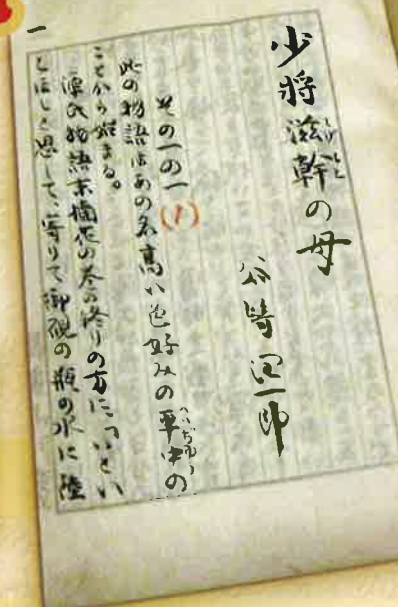 一
少將滋幹の母
谷崎潤一郎
その一の一 (1)
此の物語はあの名高い色好みの平中の
ことから始まる。
源氏物語末摘花の巻の終りの方に、「いとい
とほしと思して、寄りて御硯の瓶の水に陸